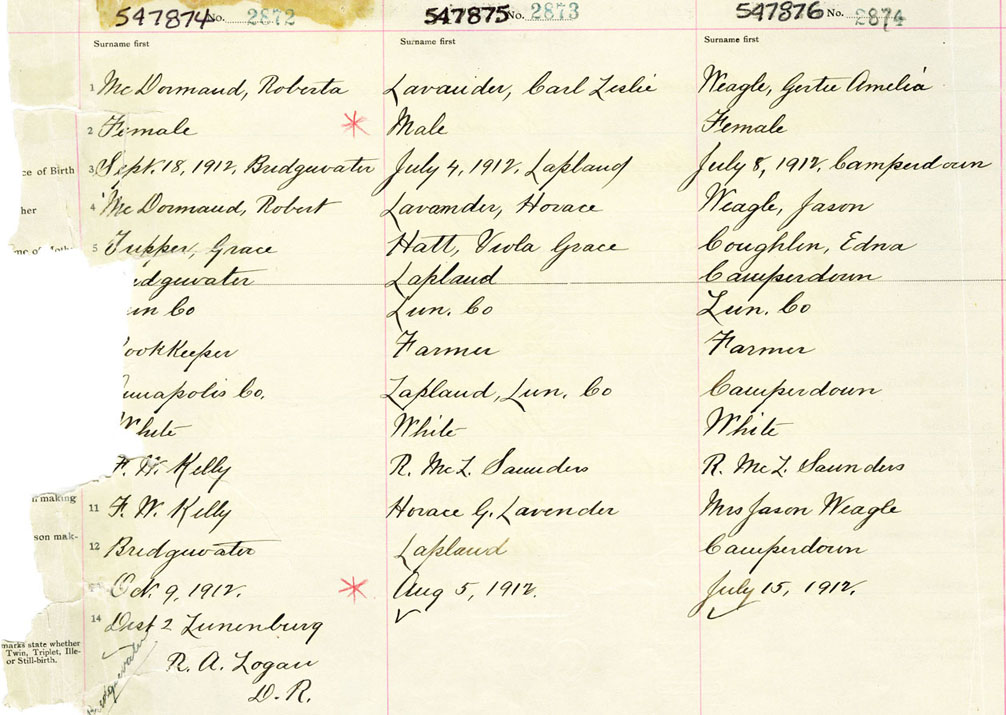 547874 No. 2872 547875 No. 2873 547876 No. 2874
Surname first Surname first Surname first
1 McDormand, Roberta Lavander, Carl Leslie Weagle, Gertie Amelia
2 Female Male Female
ce of Birth 3 Sept. 18, 1912, Bridgewater July 4, 1912, Lapland July 8, 1912, Camperdown
her 4 McDormand, Robert Lavander, Horace Weagle, Jason
me of Moth 5 Tupper, Grace Hatt, Viola Grace Coughlin, Edna
idgewater Lapland Camperdown
un Co Lun. Co Lun. Co
ookKeeper Farmer Farmer
nnapolis Co. Lapland, Lun. Co Camperdown
White White White
F. W. Kelly R. McL Saunders R. McL Saunders
n making 11 F. W. Kelly Horace G. Lavender Mrs Jason Weagle
son mak- 12 Bridgewater Lapland Camperdown
Oct. 9, 1912. Aug 5, 1912. July 15, 1912.
14 Dist 2 Lunenburg
marks state whether
Twin, Triplet, Ille-
or Still-birth.
Bridgewater
R. A. Logan
D. R.